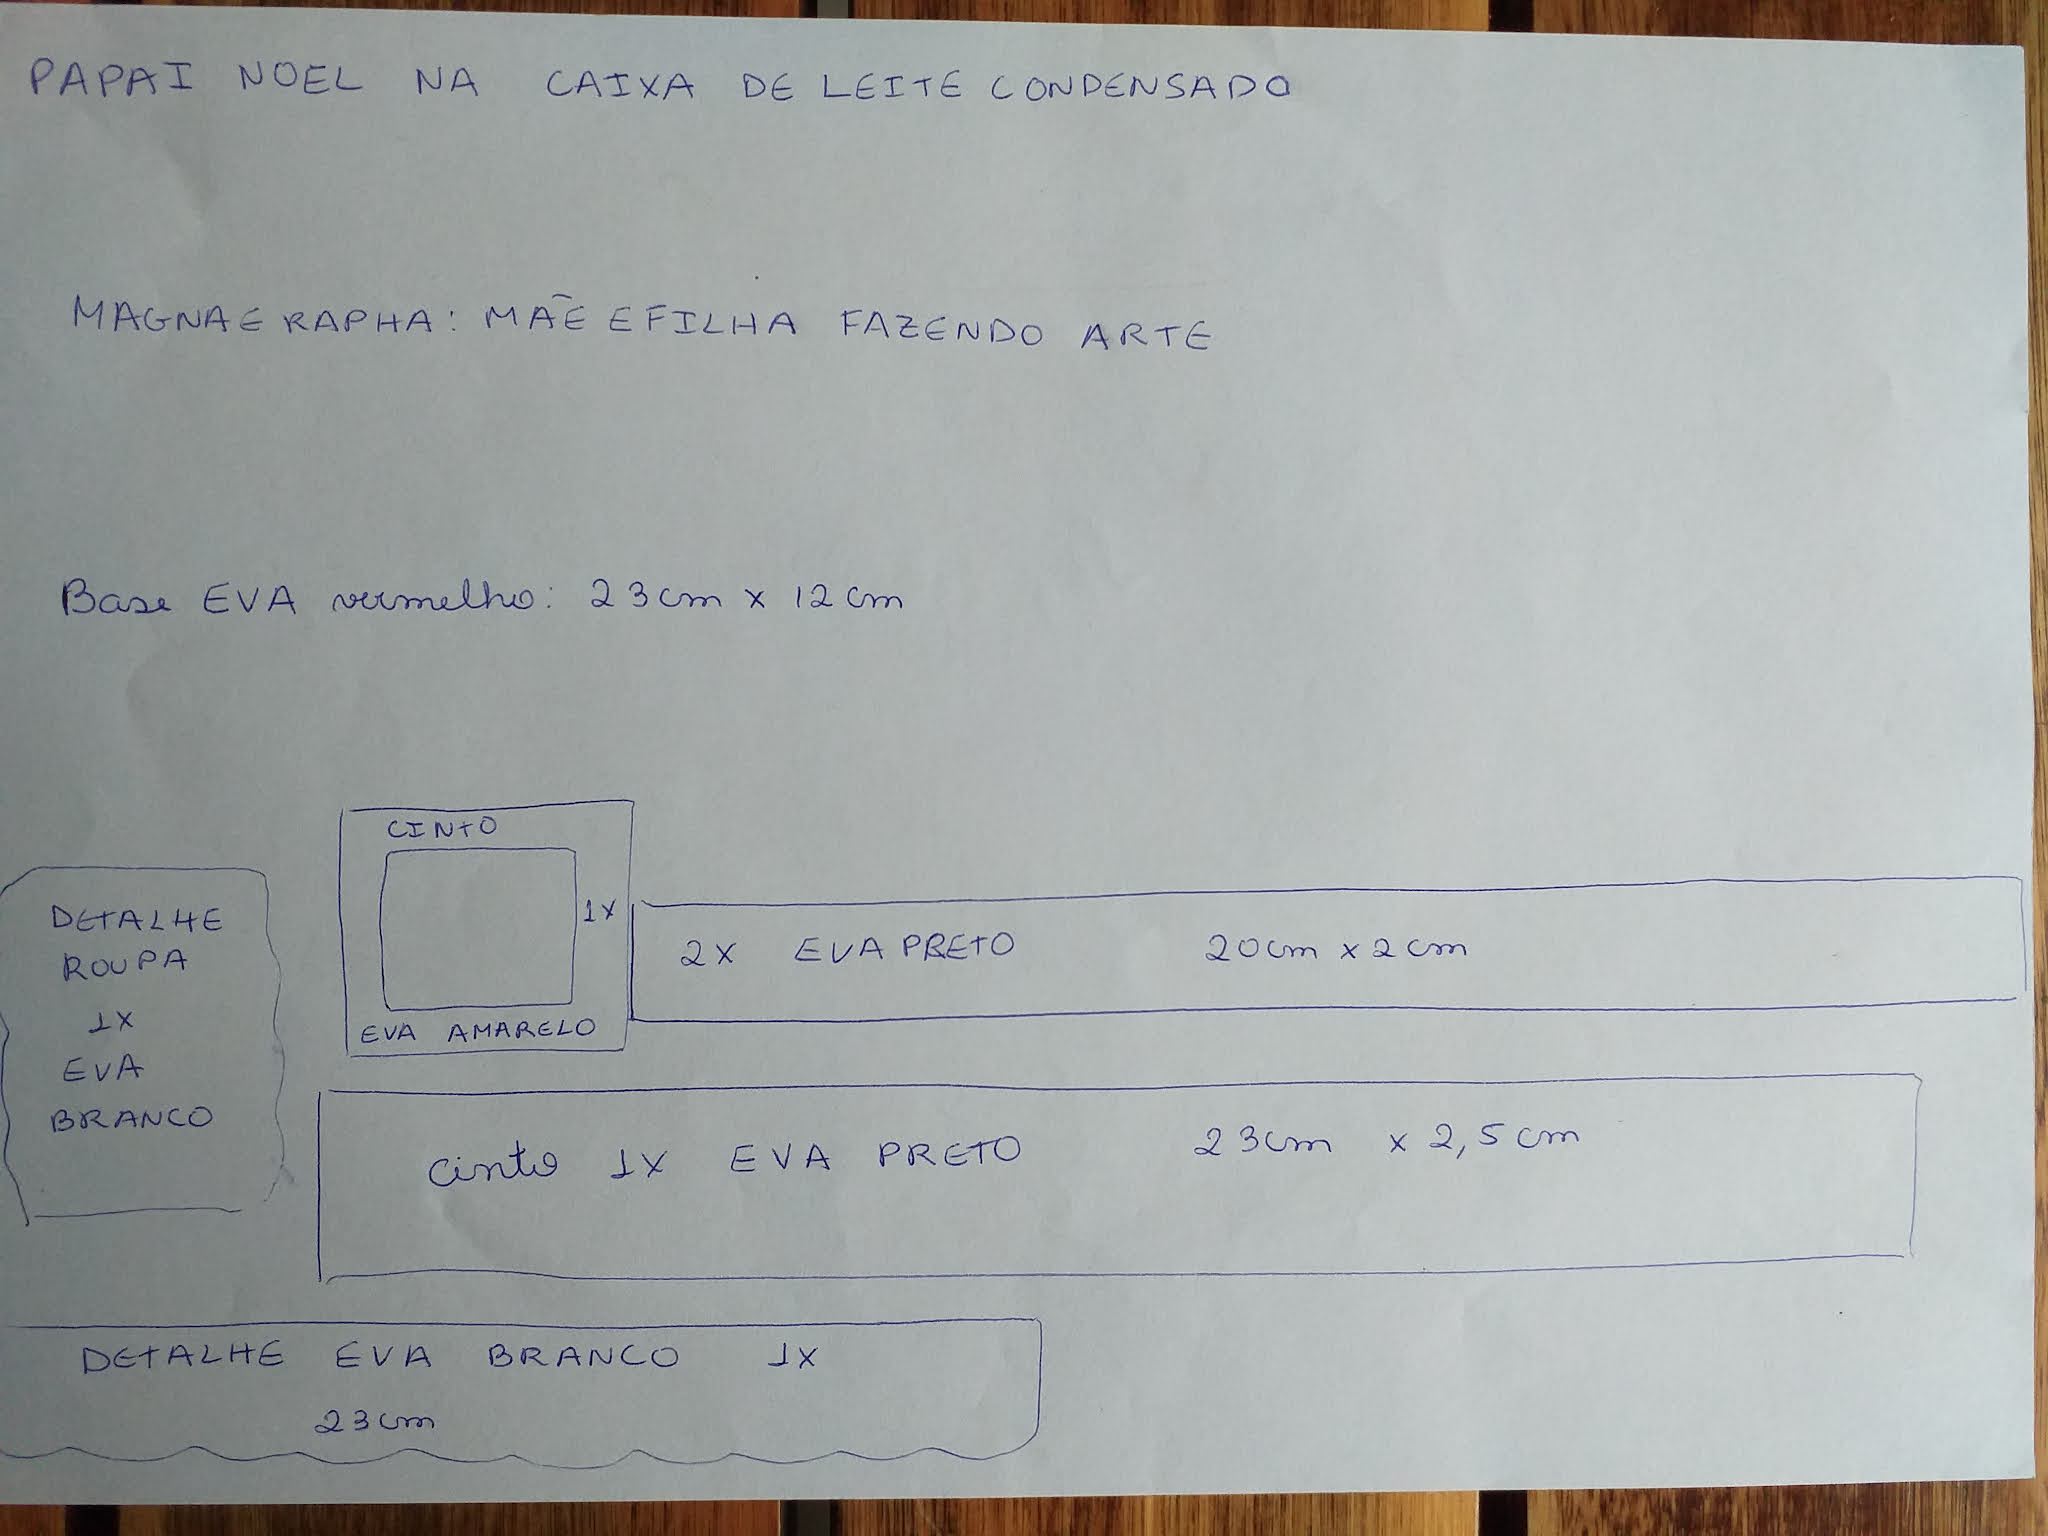 PAPAI NOEL NA CAIXA DE LEITE CONDENSADO
MAGNA E RAPHA: MÃE E FILHA FAZENDO ARTE
Base EVA vermelho: 23cm x 12cm
CINTO
1X
EVA AMARELO
2X EVA PRETO 20cm x 2cm
DETALHE
ROUPA
1X
EVA
BRANCO
cinto 1X EVA PRETO 23cm x 2,5cm
DETALHE EVA BRANCO 1X
23cm